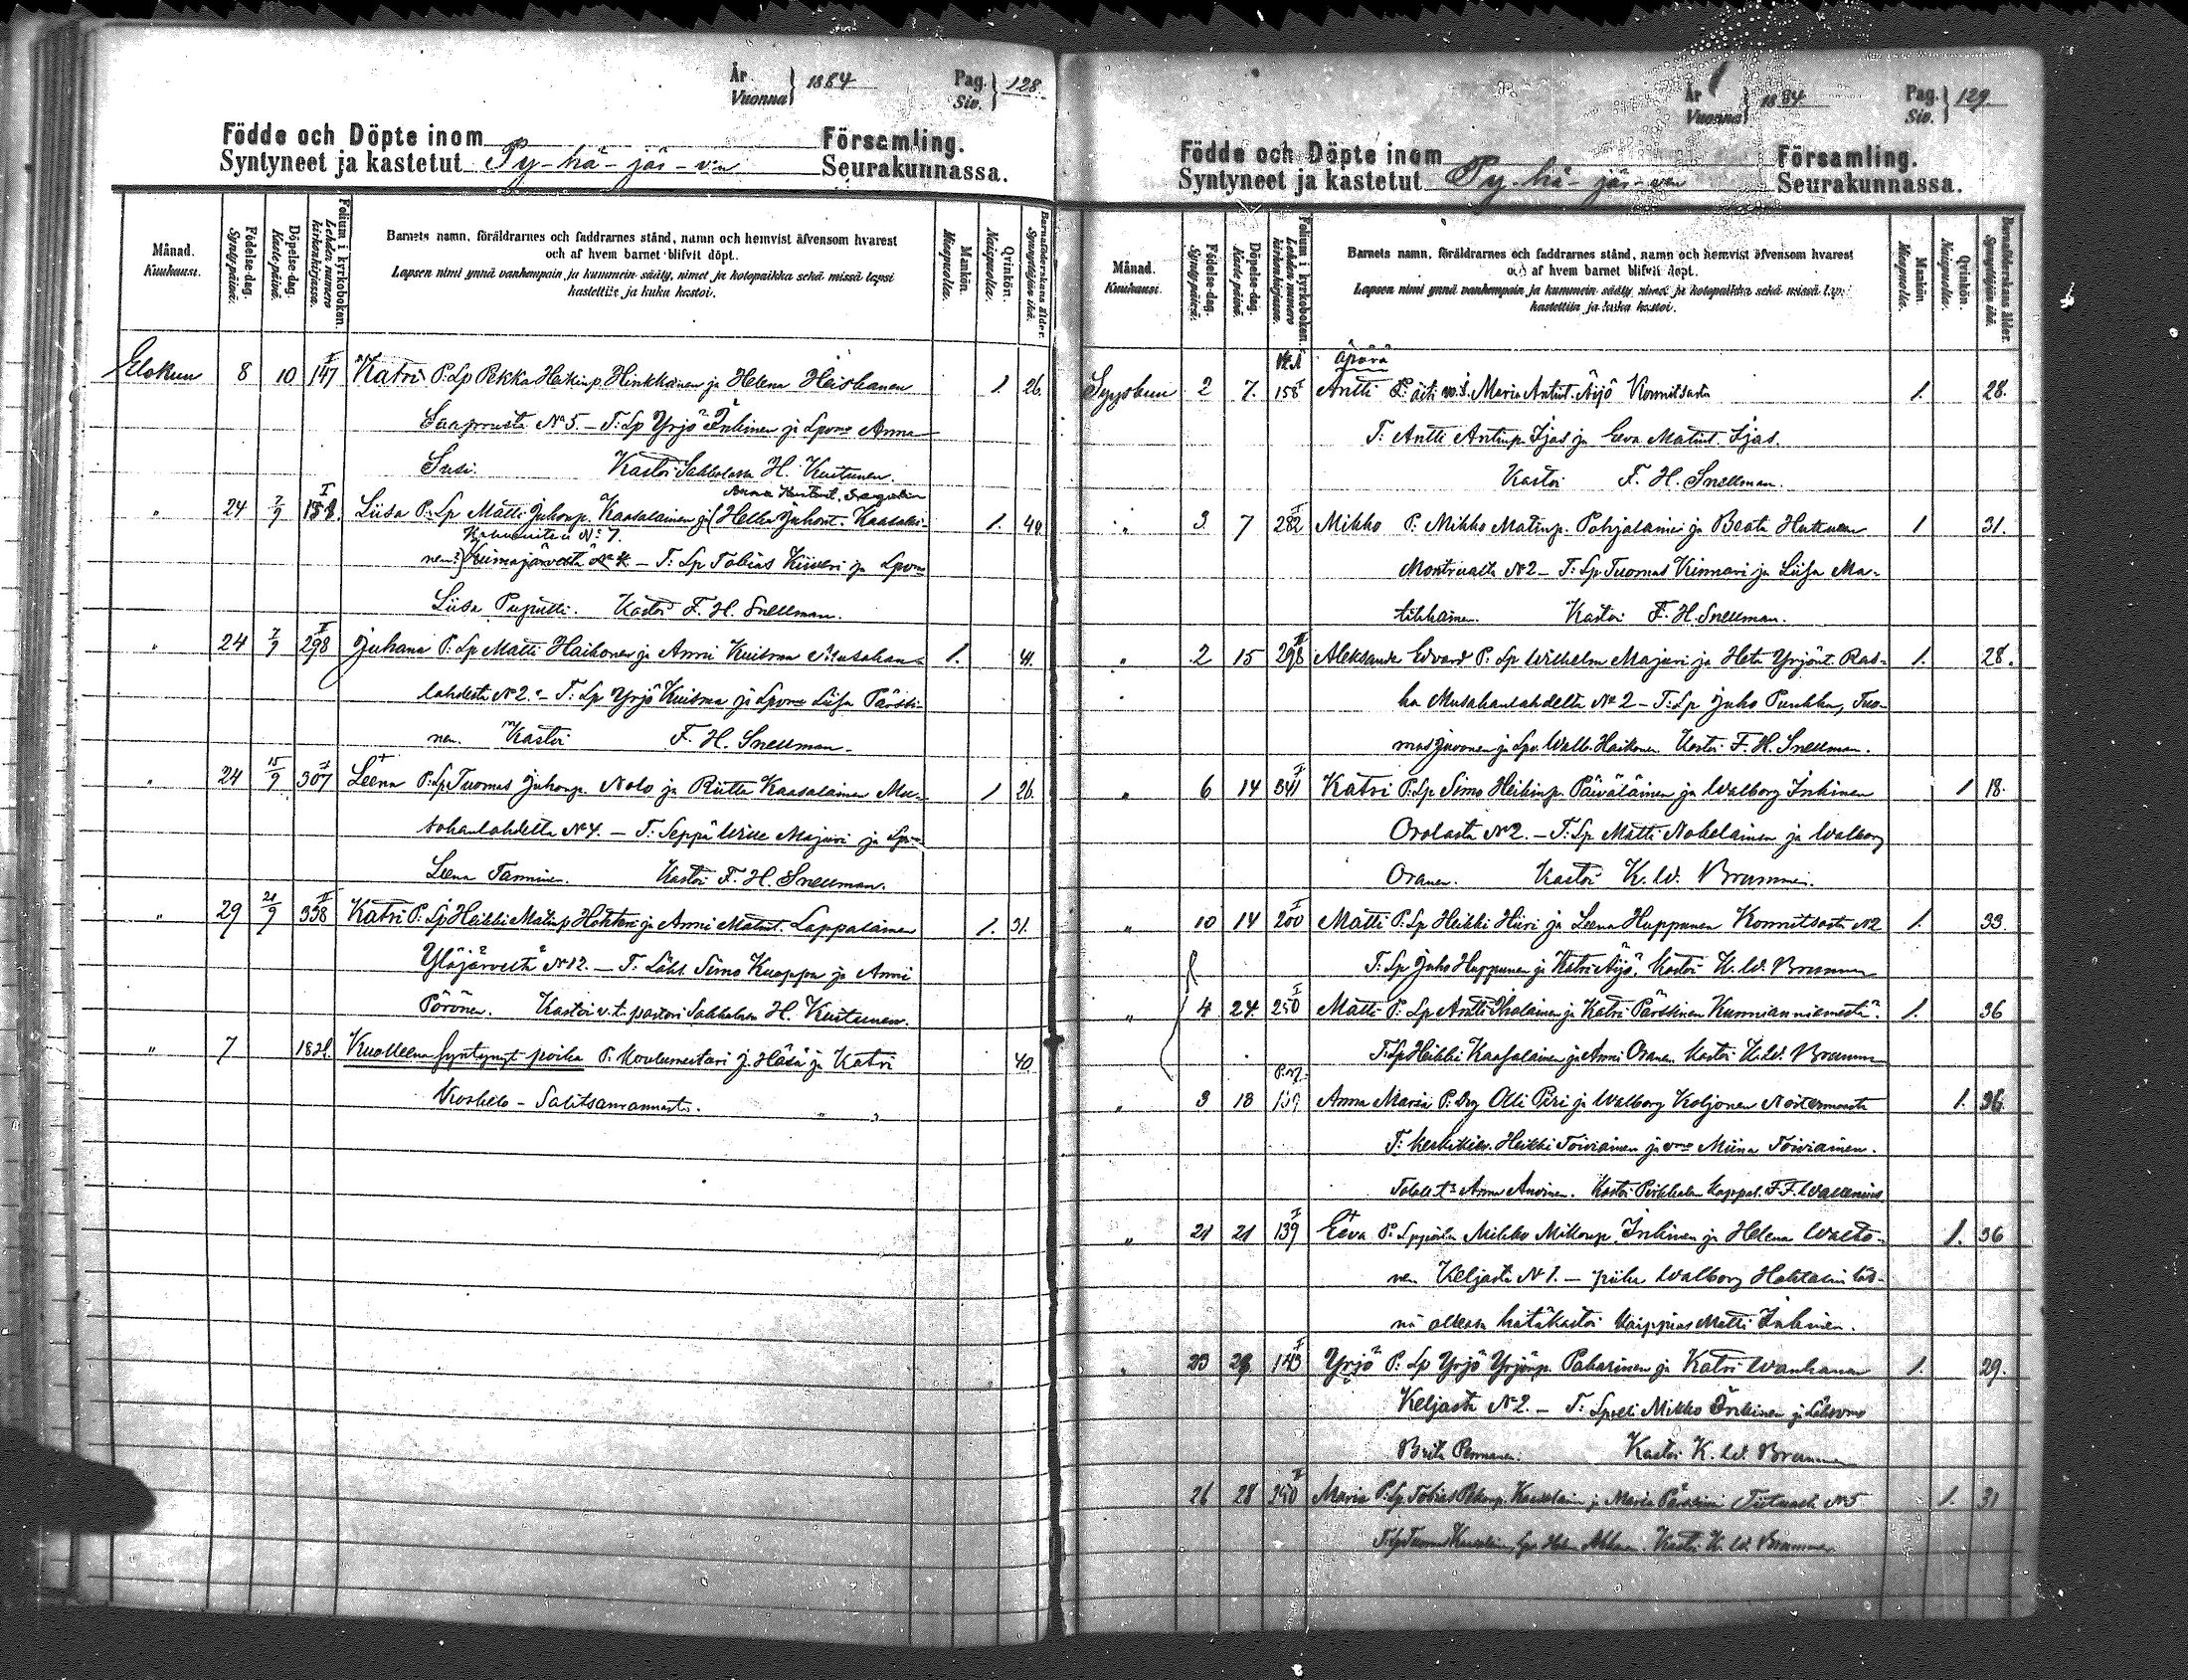 År
Vuonna } 1884 Pag.
Siv. } 128.
Födde och Döpte inom Församling.
Syntyneet ja kastetut Py-hä-jär-ven Seurakunnassa.
Månad.
Kuukausi.
Födelse-dag.
Syntypäivä.
Döpelse-dag.
Kastepäivä.
Folium i kyrkoboken.
Lehden numero kirkonkirjassa.
Barnets namn, föräldrarnes och faddrarnes stånd, namn och hemvist äfvensom hvarest
och af hvem barnet blifvit döpt.
Lapsen nimi ynnä vanhempain ja kummein sääty, nimet ja kotopaikka sekä missä lapsi
kastettiin ja kuka kastoi.
Mankön.
Miespuolta.
Qvinkön.
Naispuolta.
Barnaföderskans ålder.
Synnyttäjän ikä.
Elokuu 8 10 I 147 Katri P: Lp Pekka Heikinp. Hinkkanen ja Helena Heiskanen 1. 26.
Saaprousta No 5. – T: Lp Yrjö Inkinen ja Lpvmo Anna
Susi. Kastoi Sakkolassa H. Kuitunen.
" 24 7/9 I 158. Liisa P: Lp Matti Juhonp. Kaasalainen ja Helka Juhont. Kaasalai- 1. 44.
No 7.
nen T: Lp Tobias Kiiveri ja Lpvmo
Liisa Puputti. Kastoi F. H. Snellman.
" 24 7/9 I 298 Juhana P: Lp Matti Haikonen ja Anni Kuisma Musakan- 1. 41.
lahdesta No 2. – T: Lp Yrjö Kuisma ja Lpvmo Liisa Pärssi-
nen. Kastoi F. H. Snellman.
" 24 15/9 I 307 Leena P: Lp Tuomas Juhonp. Nolo ja Riitta Kaasalainen Mu- 1 26.
sakanlahdelta No 4. – T: Seppä Wille Majuri ja Lpvmo
Leena Tanninen. Kastoi F. H. Snellman.
" 29 21/9 II 338 Katri P: Lp Heikki Matinp Hohtari ja Anni Matint. Lappalainen 1. 31.
Yläjärveltä No 12. – T: Loht. Simo Kuoppa ja Anni
Pörönen. Kastoi v.t. pastori Sakkolassa H. Kuitunen.
" 7 Kuolleena syntynyt poika P. Koulumestari J. Häsä ja Katri 40
Koskelo – Salitsanrannasta.
År
Vuonna } 1884 Pag.
Siv. } 129
Födde och Döpte inom Församling.
Syntyneet ja kastetut Py-hä-jär-ven Seurakunnassa.
Månad.
Kuukausi.
Födelse-dag.
Syntypäivä.
Döpelse-dag.
Kastepäivä.
Folium i kyrkoboken.
Lehden numero kirkonkirjassa.
Barnets namn, föräldrarnes och faddrarnes stånd, namn och hemvist äfvensom hvarest
och af hvem barnet blifvit döpt.
Lapsen nimi ynnä vanhempain ja kummein sääty, nimet ja kotopaikka sekä missä lapsi
kastettiin ja kuka kastoi.
Mankön.
Miespuolta.
Qvinkön.
Naispuolta.
Barnaföderskans ålder.
Synnyttäjän ikä.
Äpärä
Syyskuu 2 7. 158 I Antti P: äiti Maria Antint. Äijö Konnitsasta 1. 28.
T: Antti Antinp Ijas ja Eeva Matint. Ijas.
Kastoi F. H. Snellman.
" 3 7 I 282 Mikko P: Mikko Matinp. Pohjalainen ja Beata Huttunen 1 31.
Montrualta No 2 – T: Lp Tuomas Kinnari ja Liisa Ma-
tikkainen. Kastoi F. H. Snellman.
" 2 15 II 298 Aleksander Edvard P: Lp Wilhelm Majuri ja Heta Yrjönt. Ras- 1. 28.
ka Musakanlahdelta No 2 – T: Lp Juho Purkka, Tuo-
mas Juvonen ja Lpv. Walb. Haikonen. Kastoi F. H. Snellman.
" 6 14 I 341 Katri P: Lp Simo Heikinp. Päiväläinen ja Walborg Inkinen 1 18.
Orolasta No 2. – T: Lp Matti Nokelainen ja Walborg
Oranen. Kastoi K. W. Brummer.
" 10 14 I 200 Matti P: Lp Heikki Hiiri ja Leena Huppunen Konnitsasta No 2 1. 33.
T: Lp Juho Huppunen ja Katri Äijö. Kastoi K. W. Brummer
" 4 24 I 250 Matti P: Lp Antti Ikalainen ja Katri Pärssinen Kunnianniemestä. 1. 36
T: Lp Heikki Kaasalainen ja Anni Oranen. Kastoi K. W. Brummer
" 3 13 139 Anna Maria P: Olli Piri ja Walborg Koljonen 1. 36.
T: Heikki Toiviainen ja vmo Miina Toiviainen.
Anna Anvinen. Kastoi Kappal. F. F. Wallenius
" 21 21 I 139 Eeva P: Mikko Mikonp. Inkinen ja Helena Walto- 1. 36
nen Keljasta No 1. – piika Walborg Hohtarin läs-
nä ollessa hätäkastoi Mattti Inkinen.
" 23 28 I 143 Yrjö P: Lp Yrjö Yrjönp. Pakarinen ja Katri Wanhanen 1. 29.
Keljasta No 2. – T: Mikko Inkinen ja
Brita Pennanen. Kastoi K. W. Brummer
26 28 II 240 Maria P: Lp Tobias Pekonp. Kaasalainen ja Maria Pärssinen Tiitunsta No 5 1. 31
T: Lp Tuomas Kastoi K. W. Brummer.